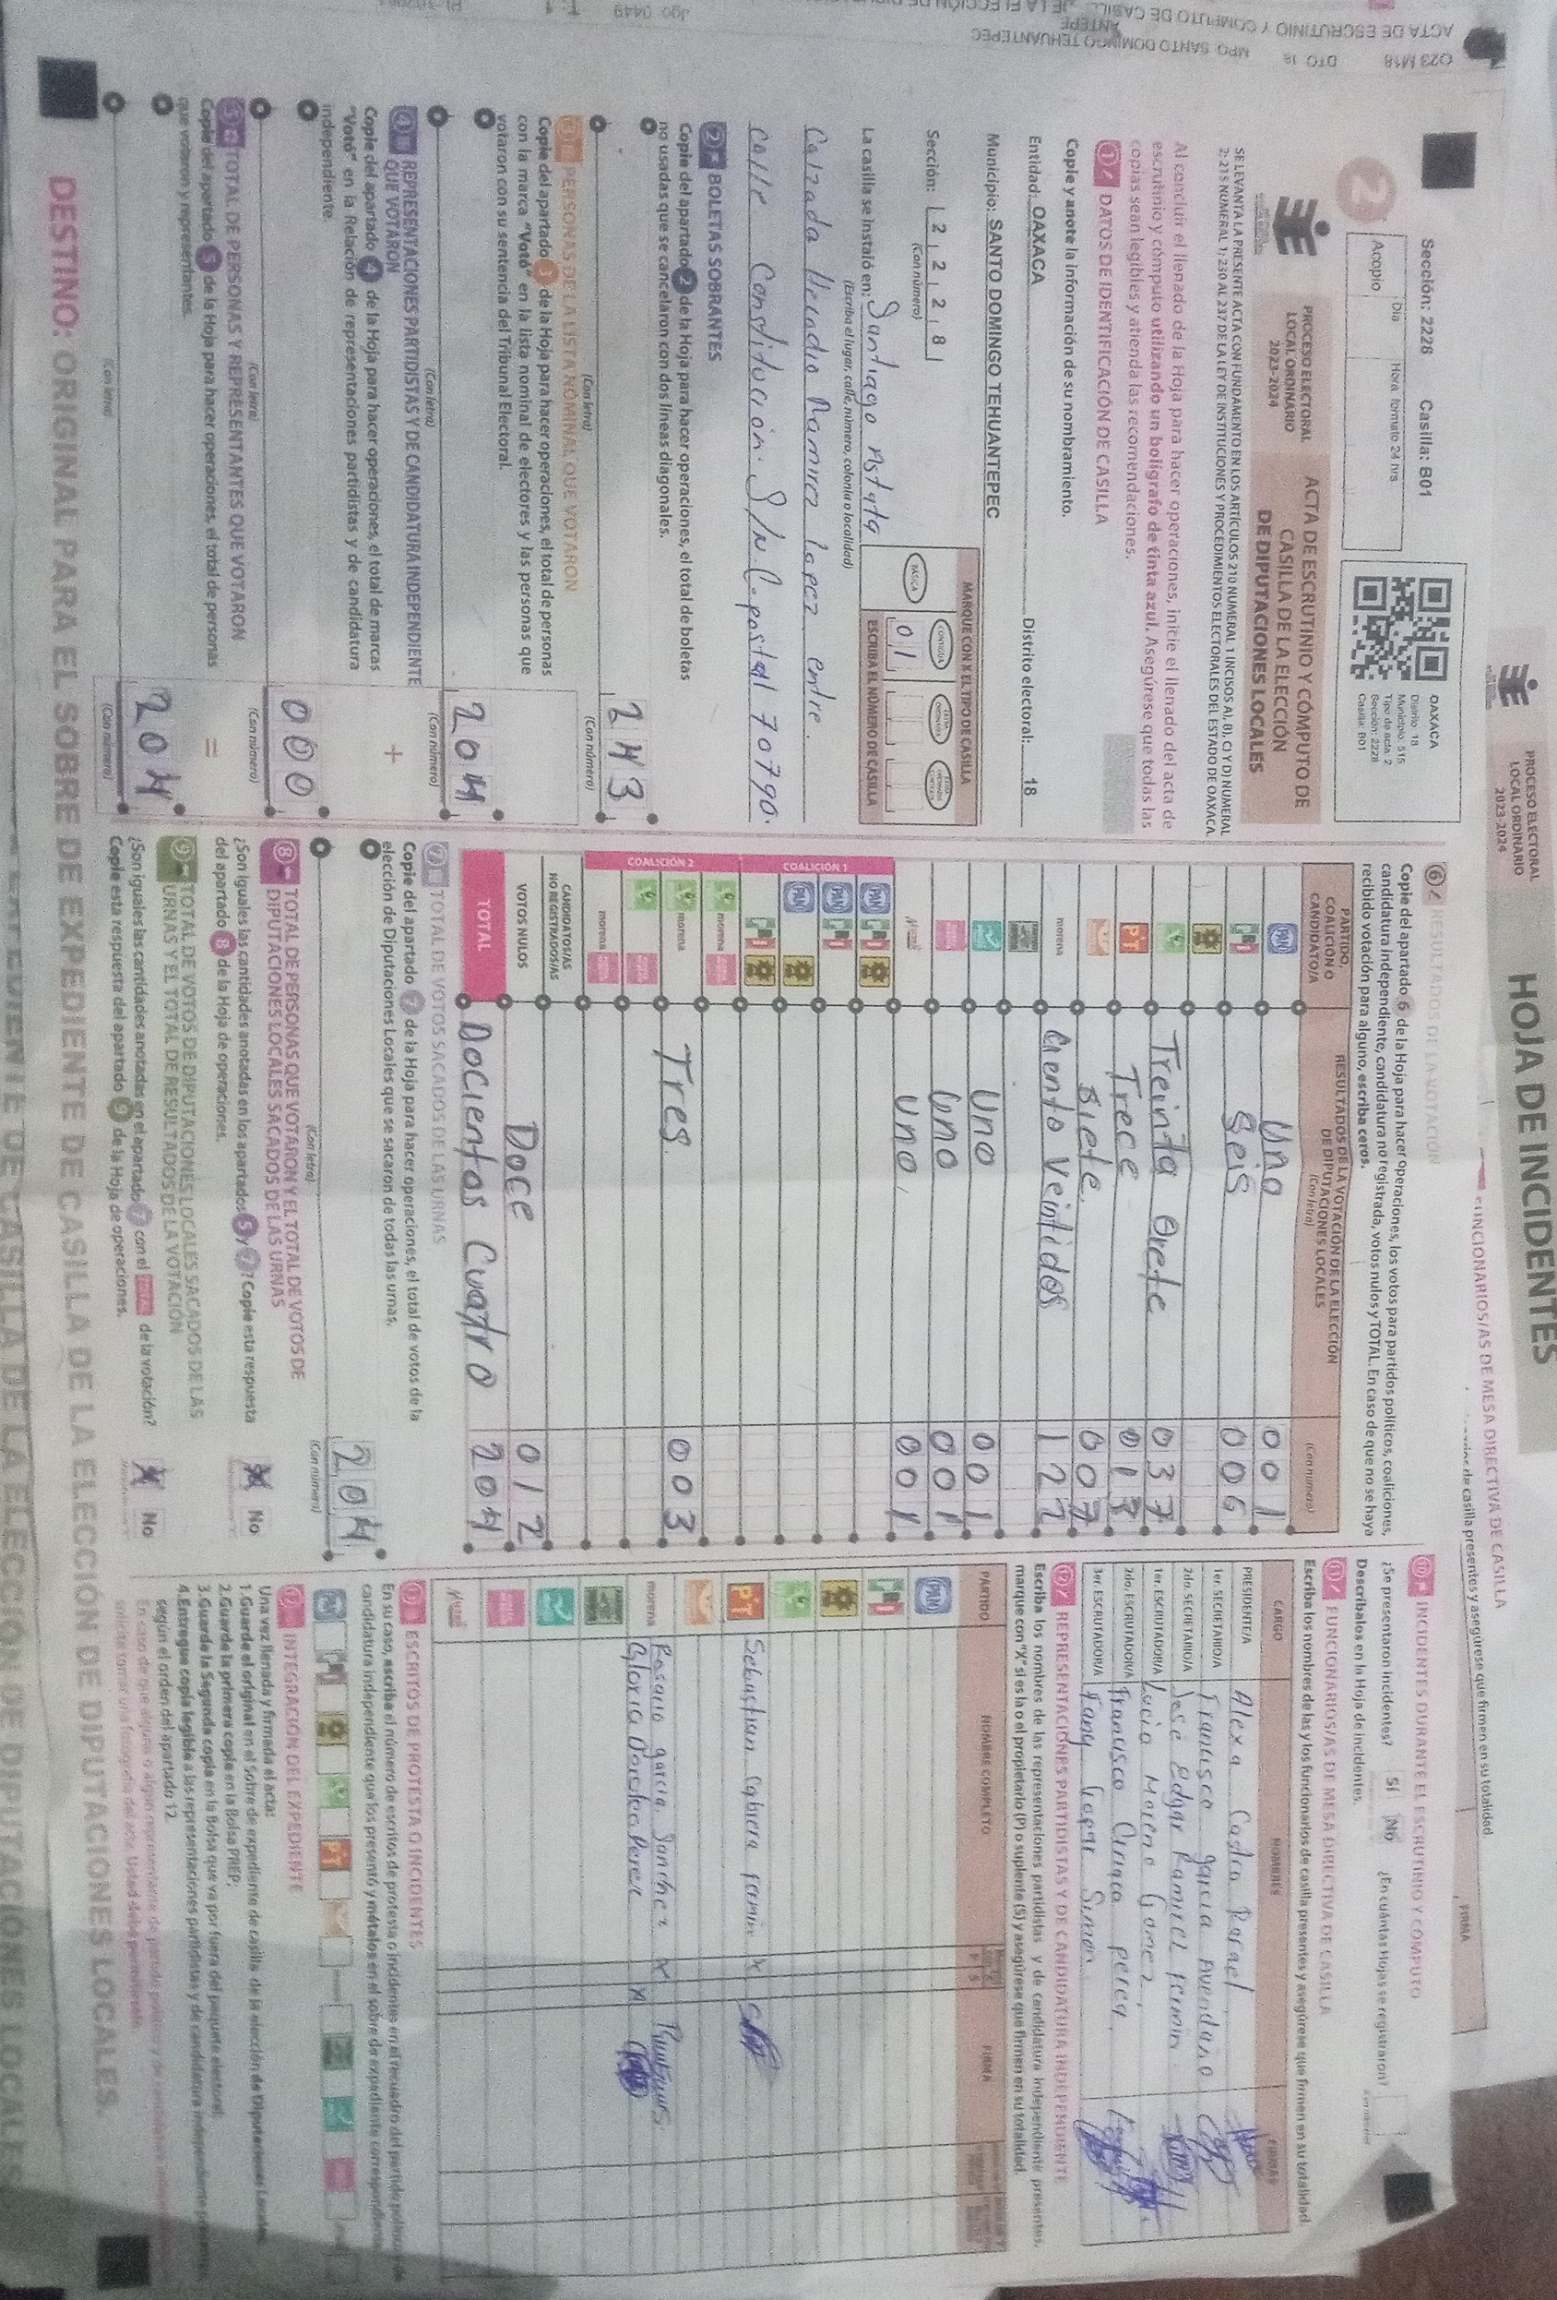 HOJA DE INCIDENTES
PROCESO ELECTORAL
LOCAL ORDINARIO
2023-2024
FUNCIONARIOS/AS DE MESA DIRECTIVA DE CASILLA
de casilla presentes y asegúrese que firmen en su totalidad
FIRMA
Sección: 2228 Casilla: B01
Día Hora formato 24 hrs
Acopio
2
OAXACA
Distrito: 18
Municipio: 515
Tipo de acta: 2
Sección: 2228
Casilla: B01
PROCESO ELECTORAL
LOCAL ORDINARIO
2023-2024
ACTA DE ESCRUTINIO Y CÓMPUTO DE
CASILLA DE LA ELECCIÓN
DE DIPUTACIONES LOCALES
SE LEVANTA LA PRESENTE ACTA CON FUNDAMENTO EN LOS ARTÍCULOS 210 NUMERAL 1 INCISOS A), B), C) Y D) NUMERAL
2; 215 NUMERAL 1; 230 AL 237 DE LA LEY DE INSTITUCIONES Y PROCEDIMIENTOS ELECTORALES DEL ESTADO DE OAXACA.
Al concluir el llenado de la Hoja para hacer operaciones, inicie el llenado del acta de
escrutinio y cómputo utilizando un bolígrafo de tinta azul. Asegúrese que todas las
copias sean legibles y atienda las recomendaciones.
1 DATOS DE IDENTIFICACIÓN DE CASILLA
Copie y anote la información de su nombramiento.
Entidad: OAXACA Distrito electoral: 18
Municipio: SANTO DOMINGO TEHUANTEPEC
Sección: 2 2 2 8
(Con número)
MARQUE CON X EL TIPO DE CASILLA
BÁSICA CONTIGUA
01
ESCRIBA EL NÚMERO DE CASILLA
La casilla se instaló en: Santiago Astata
(Escriba el lugar, calle, número, colonia o localidad)
Calzada Heradio Ramirez Lopez entre.
calle Constitución. S/N C. postal 70790.
2 BOLETAS SOBRANTES
Copie del apartado 2 de la Hoja para hacer operaciones, el total de boletas
no usadas que se cancelaron con dos líneas diagonales.
243
(Con letra) (Con número)
3 PERSONAS DE LA LISTA NOMINAL QUE VOTARON
Copie del apartado 3 de la Hoja para hacer operaciones, el total de personas
con la marca "Votó" en la lista nominal de electores y las personas que
votaron con su sentencia del Tribunal Electoral.
204
(Con letra) (Con número)
4 REPRESENTACIONES PARTIDISTAS Y DE CANDIDATURA INDEPENDIENTE
QUE VOTARON
+
Copie del apartado 4 de la Hoja para hacer operaciones, el total de marcas
"Votó" en la Relación de representaciones partidistas y de candidatura
independiente.
000
(Con letra) (Con número)
5 TOTAL DE PERSONAS Y REPRESENTANTES QUE VOTARON
=
Copie del apartado 5 de la Hoja para hacer operaciones, el total de personas
que votaron y representantes.
204
(Con letra) (Con número)
6 RESULTADOS DE LA VOTACIÓN
Copie del apartado 6 de la Hoja para hacer operaciones, los votos para partidos políticos, coaliciones,
candidatura independiente, candidatura no registrada, votos nulos y TOTAL. En caso de que no se haya
recibido votación para alguno, escriba ceros.
PARTIDO,
COALICIÓN O
CANDIDATO/A
RESULTADOS DE LA VOTACIÓN DE LA ELECCIÓN
DE DIPUTACIONES LOCALES
(Con letra) (Con número)
PAN Uno 001
PRI Seis 006
Treinta Ciete 037
PT Trece 013
Siete. 007
morena Ciento Veintidos 122
Uno 001
Uno 001
Uno, 001
COALICIÓN 1
COALICIÓN 2
morena Tres. 003
CANDIDATOS/AS
NO REGISTRADOS/AS
VOTOS NULOS Doce 012
TOTAL Docientos Cuatro 204
7 TOTAL DE VOTOS SACADOS DE LAS URNAS
Copie del apartado 7 de la Hoja para hacer operaciones, el total de votos de la
elección de Diputaciones Locales que se sacaron de todas las urnas.
204
(Con letra) (Con número)
8 TOTAL DE PERSONAS QUE VOTARON Y EL TOTAL DE VOTOS DE
DIPUTACIONES LOCALES SACADOS DE LAS URNAS
¿Son iguales las cantidades anotadas en los apartados 5 y 7? Copie esta respuesta
del apartado 8 de la Hoja de operaciones.
No
9 TOTAL DE VOTOS DE DIPUTACIONES LOCALES SACADOS DE LAS
URNAS Y EL TOTAL DE RESULTADOS DE LA VOTACIÓN
¿Son iguales las cantidades anotadas en el apartado 7 con el TOTAL de la votación?
Copie esta respuesta del apartado 9 de la Hoja de operaciones.
No
10 INCIDENTES DURANTE EL ESCRUTINIO Y CÓMPUTO
¿Se presentaron incidentes? Sí No ¿En cuántas Hojas se registraron?
Descríbalos en la Hoja de incidentes.
11 FUNCIONARIOS/AS DE MESA DIRECTIVA DE CASILLA
Escriba los nombres de las y los funcionarios de casilla presentes y asegúrese que firmen en su totalidad.
CARGO NOMBRES FIRMAS
PRESIDENTE/A Alexa Castro Rafael
1er. SECRETARIO/A Francisco garcia Avendaño
2do. SECRETARIO/A Jose Edgar Ramirez
1er. ESCRUTADOR/A Lucia Moreno Gomez
2do. ESCRUTADOR/A Francisco
3er. ESCRUTADOR/A Fany Simon
12 REPRESENTACIONES PARTIDISTAS Y DE CANDIDATURA INDEPENDIENTE
Escriba los nombres de las representaciones partidistas y de candidatura independiente presentes,
marque con "X" si es la o el propietario (P) o suplente (S) y asegúrese que firmen en su totalidad.
PARTIDO NOMBRE COMPLETO FIRMA
PAN
PRI
PT Sebastian Cabrera X
morena Rosario garcia Sanchez X
Gloria Perez X
13 ESCRITOS DE PROTESTA O INCIDENTES
En su caso, escriba el número de escritos de protesta o incidentes en el recuadro del partido político o de
candidatura independiente que los presentó y métalos en el sobre de expediente correspondiente.
INTEGRACIÓN DEL EXPEDIENTE
Una vez llenada y firmada el acta:
1. Guarde el original en el Sobre de expediente de casilla de la elección de Diputaciones Locales.
2. Guarde la primera copia en la Bolsa PREP.
3. Guarde la Segunda copia en la Bolsa que va por fuera del paquete electoral.
4. Entregue copia legible a las representaciones partidistas y de candidatura independiente presentes,
según el orden del apartado 12.
DESTINO: ORIGINAL PARA EL SOBRE DE EXPEDIENTE DE CASILLA DE LA ELECCIÓN DE DIPUTACIONES LOCALES.
DE CASILLA DE LA ELECCIÓN DE DIPUTACIONES LOCALES
ACTA DE ESCRUTINIO Y COMPUTO DE CASILL
023 M18 DTO 18 MPO. SANTO DOMINGO TEHUANTEPEC